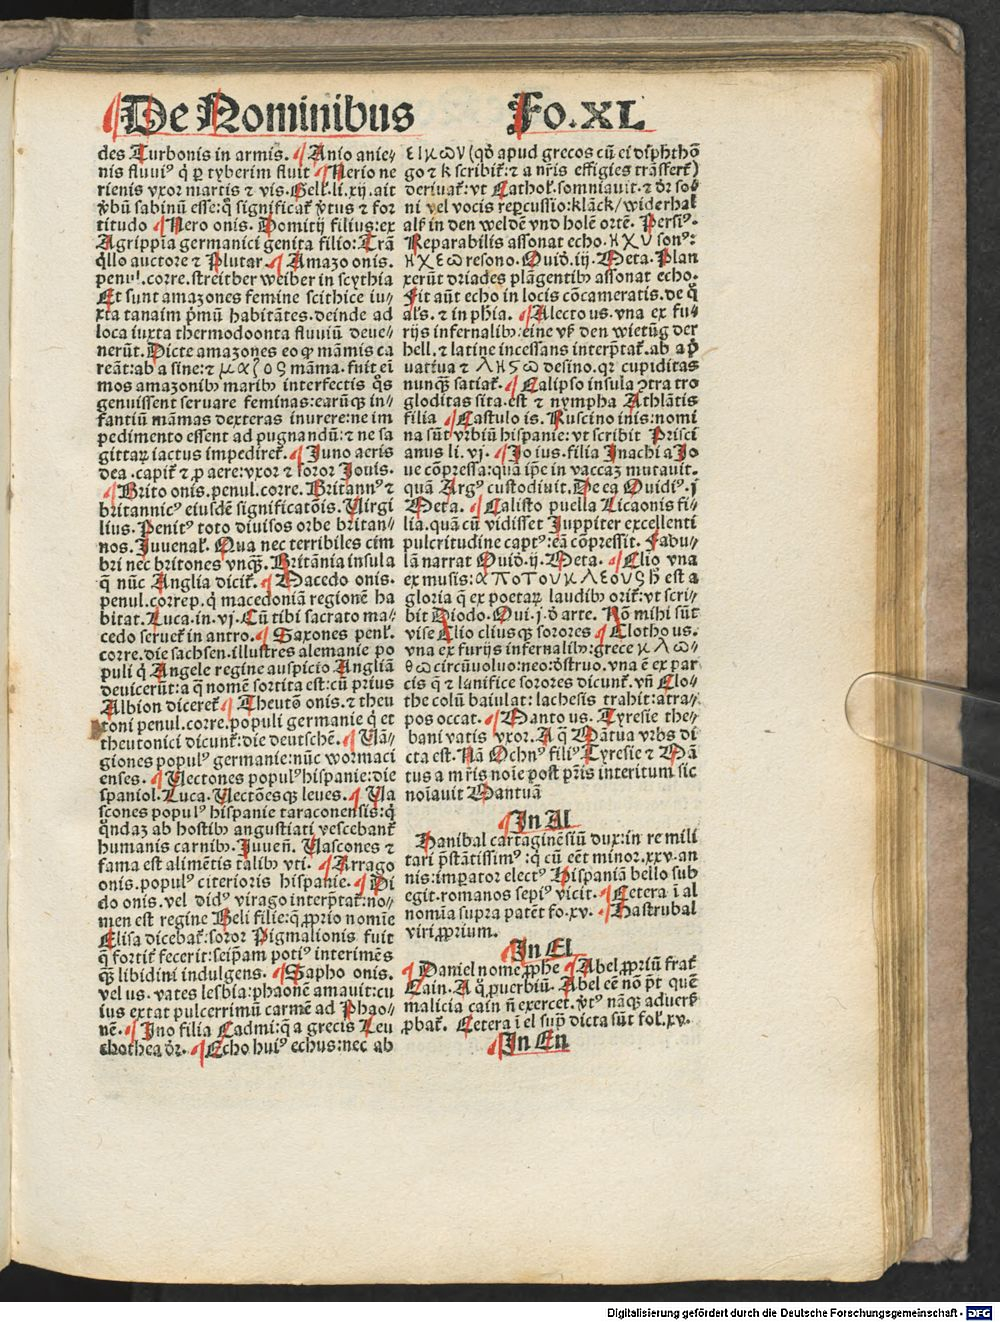 De Nominibus Fo.XL
des Turbonis in armis. ¶ Anio anie⸗
nis fluuiꝰ q̇ ꝑ tyberim fluit ¶ Nerio ne
rienis vxor martis ⁊ vis. Gell. li. xij. ait
v̓bū sabinū esse: q̄ significat̉ v̓tus ⁊ for
titudo ¶ Nero onis. Domitij filius: ex
Agrippīa germanici genita filio: Trā
q̇llo auctore ⁊ Plutar. ¶ Amazo onis.
penul. corre. streitber weiber in scythia
Et sunt amazones femine scithice iu⸗
xta tanaim p̓mū habitātes. deinde ad
loca iuxta thermodoonta fluuiū deue⸗
nerūt. Dicte amazones eo ꝙ māmis ca
reāt: ab a sine: ⁊ μαζος māma. fuit ei
mos amazonibꝰ maribꝰ interfectis q̊s
genuissent seruare feminas: earūqꝫ in⸗
fantiū māmas dexteras inurere: ne im
pedimento essent ad pugnandū: ⁊ ne sa
gittaꝝ iactus impediret̉. ¶ Juno aeris
dea. capit̉ ⁊ ꝓ aere: vxor ⁊ soror Jouis.
¶ Brito onis. penul. corre. Britannꝰ ⁊
britannicꝰ eiusdē significatōis. Virgi
lius. Penitꝰ toto diuisos orbe britan⸗
nos. Juuenal̉. Qua nec terribiles cim
bri nec britones vnqꝫ. Britānia insula
q̄ nūc Anglia dicit̉. ¶ Macedo onis.
penul. correp. q̇ macedoniā regionē ha
bitat. Luca. in. vj. Cū tibi sacrato ma⸗
cedo seruet̉ in antro. ¶ Saxones penl̉.
corre. die sachsen. illustres alemanie po
puli q̇ Angele regine auspicio Angliā
deuicerūt: a q̄ nomē sortita est: cū prius
Albion diceret̉ ¶ Theutō onis. ⁊ theu
toni penul. corre. populi germanie q̇ et
theutonici dicunt̉: die deutschē. ¶ Vā⸗
giones populꝰ germanie: nūc wormaci
enses. ¶ Vectones populꝰ hispanie: die
spaniol. Luca. Vectōesqꝫ leues. ¶ Va
scones populꝰ hispanie taraconensis: q̇
q̊ndaꝫ ab hostibꝰ angustiati vescebant̉
humanis carnibꝰ. Juueñ. Vascones ⁊
fama est alimētis talibꝰ vti. ¶ Arrago
onis. populꝰ citerioris hispanie. ¶ Di
do onis. vel didꝰ virago interp̓tat̉: no⸗
men est regine Beli filie: q̄ ꝓprio nomīe
Elisa dicebat̉: soror Pigmalionis fuit
q̄ fortit̉ fecerit: seip̄am potiꝰ interimēs
qꝫ̄ libidini indulgens. ¶ Sapho onis.
vel us. vates lesbia: phaonē amauit: cu
ius extat pulcerrimū carmē ad Phao⸗
nē. ¶ Ino filia Cadmi: q̄ a grecis Leu
chothea dr̄. ¶ Echo huiꝰ echus: nec ab
εικων (qd̓ apud grecos cū ei dip̄hthō
go ⁊ k scribit̉: ⁊ a nr̄is effigies trāsfert̉)
deriuat̉: vt Cathol̉. somniauit. ⁊ dr̄ so⸗
ni vel vocis rep̱cussio: klāck/ widerhal
als̉ in den weldē vnd holē ortē. Persiꝰ.
Reparabilis assonat echo. ηχυ sonꝰ:
ηχεω resono. Ouid̓. iij. Meta. Plan
xerūt driades plāgentibꝰ assonat echo.
Fit aūt echo in locis cōcameratis. de q̄
als̉. ⁊ in ph̄ia. ¶ Alecto us. vna ex fu⸗
rijs infernalibꝰ: eine vß den wietūg der
hell. ⁊ latine incessans interp̓tat̉. ab a p̓
uatiua ⁊ ληγω desino. qꝛ cupiditas
nunqꝫ̄ satiat̉. ¶ Calipso insula ꝯtra tro
gloditas sita. est ⁊ nympha Athlātis
filia ¶ Castulo is. Ruscino inis: nomi
na sūt vrbiū hispanie: vt scribit Prisci
anus li. vj. ¶ Jo ius. filia Inachi a Jo
ue cōpressa: quā ip̄e in vaccaꝫ mutauit.
quā Argꝰ custodiuit. De ea Ouidiꝰ. j
Meta. ¶ Calisto puella Licaonis fi⸗
lia. quā cū vidisset Juppiter excellenti
pulcritudine captꝰ: eā cōpressit. Fabu⸗
lā narrat Ouid̓. ij. Meta. ¶ Clio vna
ex musis: απο του κλεους h̄ est a
gloria q̄ ex poetaꝝ laudibꝰ orit̉: vt scri⸗
bit Diodo. Oui. j. d̓ arte. Nō mihi sūt
vise Clio cliusqꝫ sorores ¶ Clotho us.
vna ex furijs infernalibꝰ: grece κλω⸗
θω circūuoluo: neo: d̓struo. vna ē ex par
cis q̄ ⁊ lanifice sorores dicunt̉. vn̄ Clo⸗
tho colū baiulat: lachesis trahit: atra⸗
pos occat. ¶ Manto us. Tyresie the⸗
bani vatis vxor. A q̄ Mātua vrbs di
cta est. Nā Ochnꝰ filiꝰ Tyresie ⁊ Mā
tus a mr̄is noīe post pr̄is interitum sic
noīauit Mantuā
¶ In Al
Hanibal cartaginēsiū dux: in re mili
tari p̓stātissimꝰ: q̇ cū eēt minor. xxv. an
nis: imꝑator electꝰ Hispaniā bello sub
egit. romanos sepiꝰ vicit. ¶ Cetera ī al
nomīa supra patēt fo. xv. ¶ Hastrubal
viri ꝓprium.
¶ In El
¶ Daniel nome ꝓphe ¶ Abel ꝓpriū frat̉
Cain. A q̊ ꝓuerbiū. Abel eē nō pt̄ quē
malicia cain n̄ exercet. v̓tꝰ nāqꝫ aduers̉
ꝓbat̉. Cetera ī el sup̄ dicta sūt fol̉. xv.
¶ In En
Digitalisierung gefördert durch die Deutsche Forschungsgemeinschaft - DFG